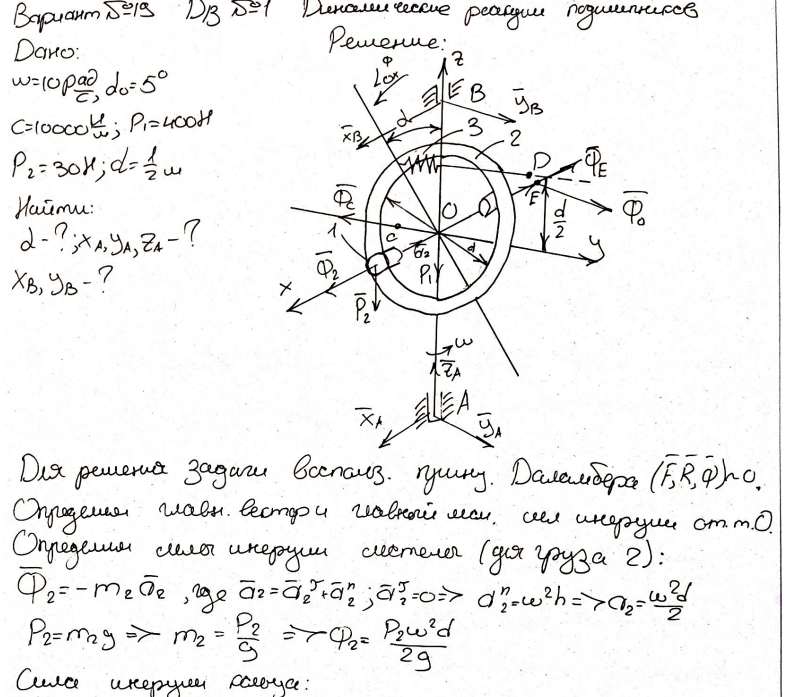 Вариант №19 DВ №1 Динамические реакции подшипников
Дано:
Решение:
ω=10 рад/с, α₀=5°
c=10000 Н/м; P₁=400Н
P₂=30Н; d=1/2 м
Найти:
α-?; xA, yA, zA-?
xB, yB-?
z
B
ȳB
x̄B
α
3
2
D
Φ̄E
E
Φ̄₀
d/2
Φ̄c
1
C
O
y
ā₂
d
Φ̄₂
P̄₁
x
P̄₂
ω
z̄A
A
x̄A
ȳA
Для решения задачи воспольз. принц. Даламбера (F̄,R̄,Φ̄)~0.
Определим главн. вектор и главный мом. сил инерции от. т.O.
Определим силы инерции системы (для груза 2):
Φ̄₂=-m₂ā₂, где ā₂=ā₂^τ+ā₂ⁿ; ā₂^τ=0=> a₂ⁿ=ω²h=>a₂=ω²d/2
P₂=m₂g => m₂=P₂/g => Φ₂=P₂ω²d/2g
Сила инерции кольца: